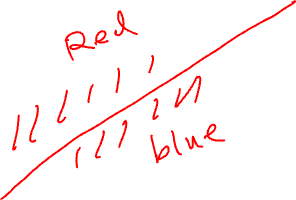 Red
blue